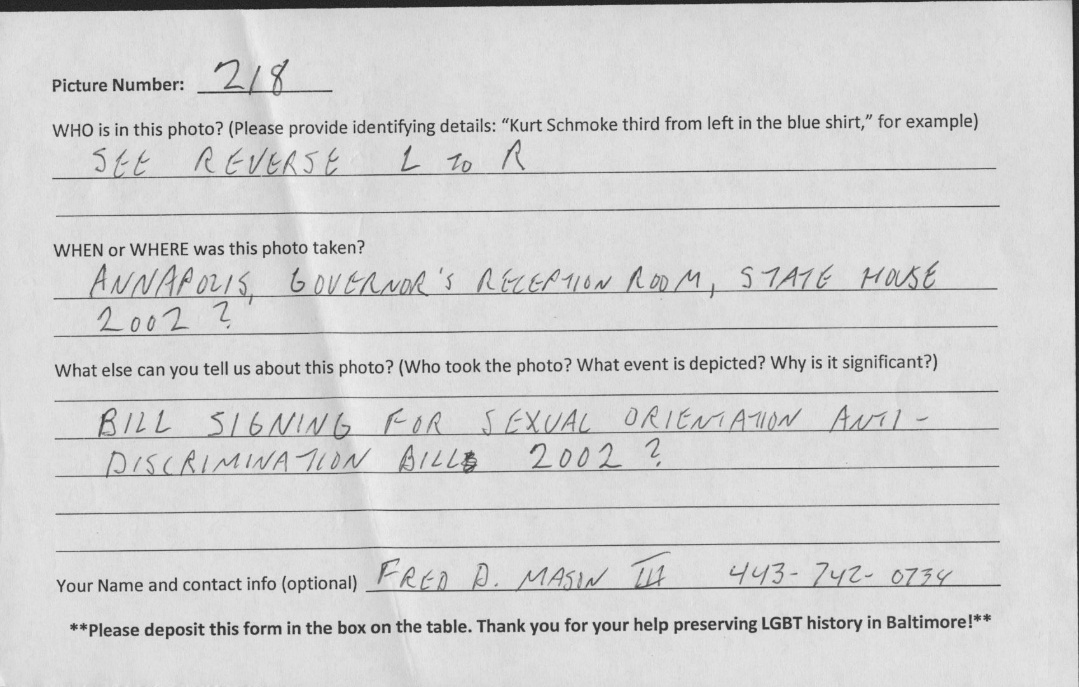 Picture Number: 218
WHO is in this photo? (Please provide identifying details: “Kurt Schmoke third from left in the blue shirt,” for example)
SEE REVERSE L TO R
WHEN or WHERE was this photo taken?
ANNAPOLIS, GOVERNOR'S RECEPTION ROOM, STATE HOUSE
2002 ?
What else can you tell us about this photo? (Who took the photo? What event is depicted? Why is it significant?)
BILL SIGNING FOR SEXUAL ORIENTATION ANTI-
DISCRIMINATION BILL 2002 ?
Your Name and contact info (optional) FRED D. MASON III 443-742-0734
**Please deposit this form in the box on the table. Thank you for your help preserving LGBT history in Baltimore!**